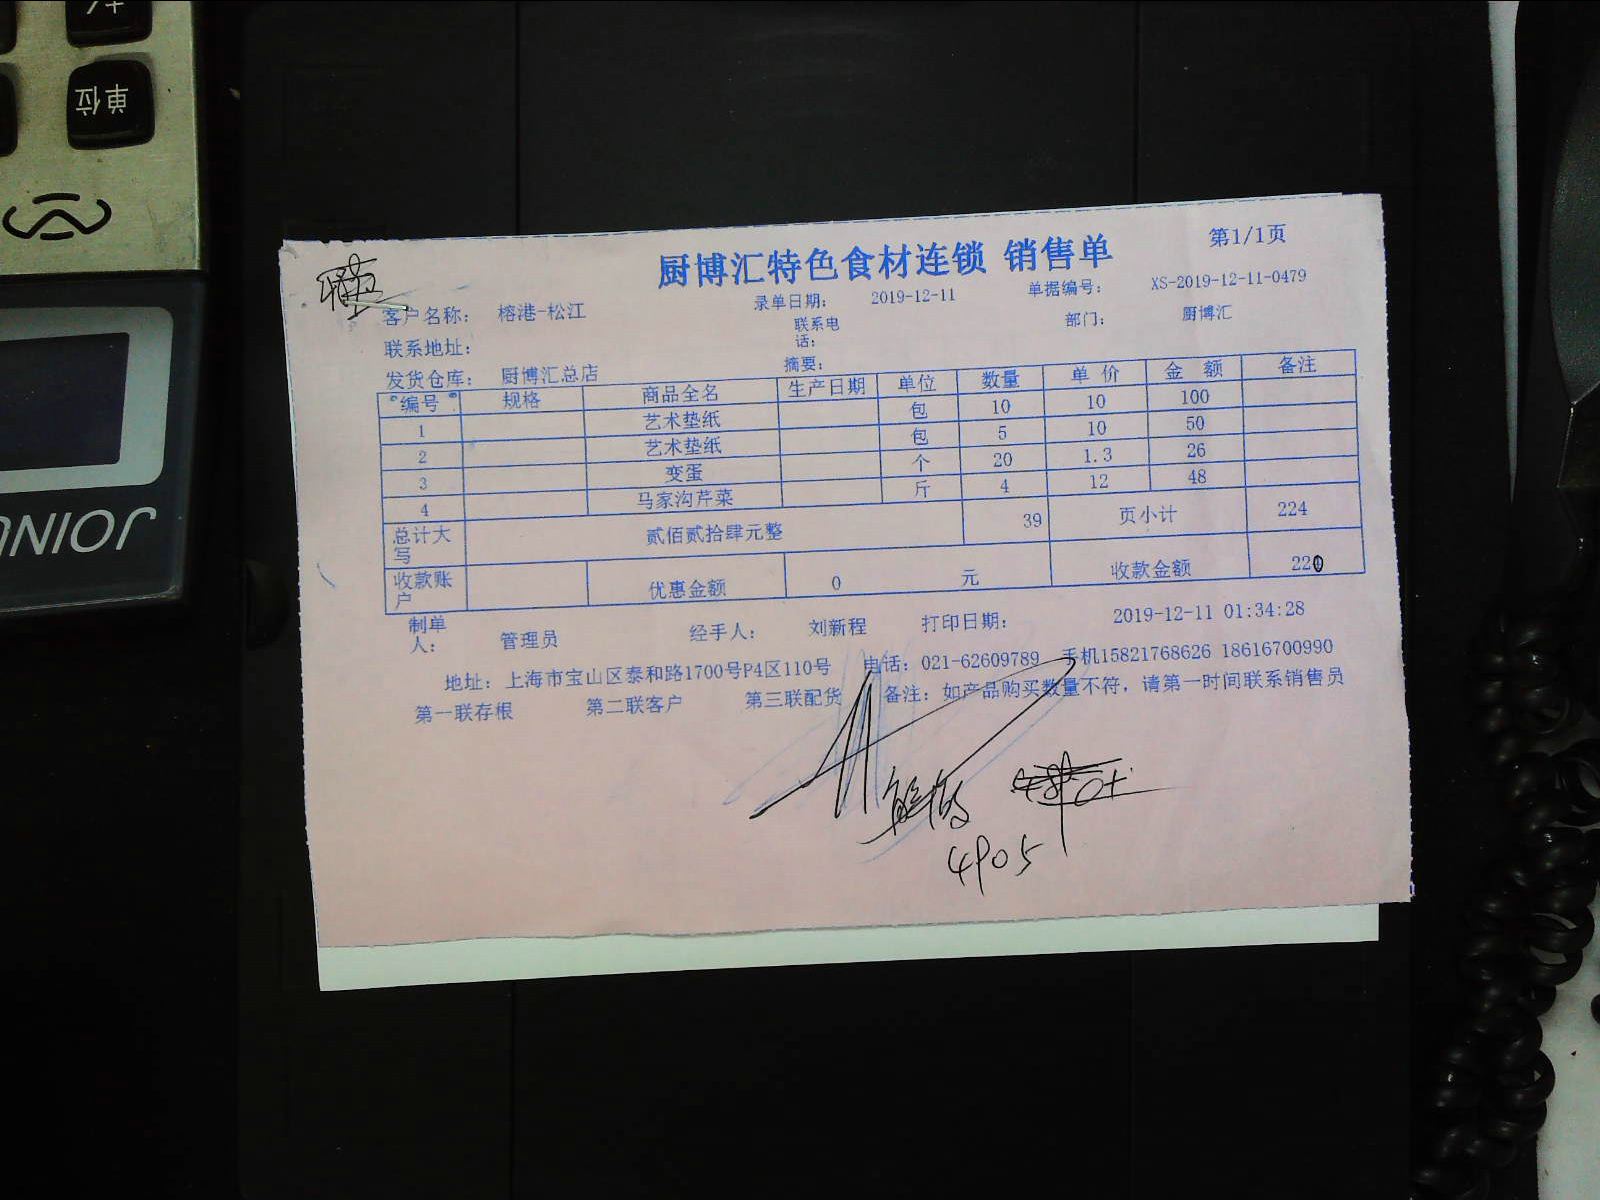 单位
JOINU
厨博汇特色食材连锁 销售单 第1/1页
客户名称： 榕港-松江 录单日期： 2019-12-11 单据编号： XS-2019-12-11-0479
联系地址： 联系电话： 部门： 厨博汇
发货仓库： 厨博汇总店 摘要：
编号 规格 商品全名 生产日期 单位 数量 单价 金额 备注
1 艺术垫纸 包 10 10 100
2 艺术垫纸 包 5 10 50
3 变蛋 个 20 1.3 26
4 马家沟芹菜 斤 4 12 48
总计大写 贰佰贰拾肆元整 39 页小计 224
收款账户 优惠金额 0 元 收款金额 220
制单人： 管理员 经手人： 刘新程 打印日期： 2019-12-11 01:34:28
地址：上海市宝山区泰和路1700号P4区110号 电话：021-62609789 手机15821768626 18616700990
第一联存根 第二联客户 第三联配货 备注：如产品购买数量不符，请第一时间联系销售员
4905